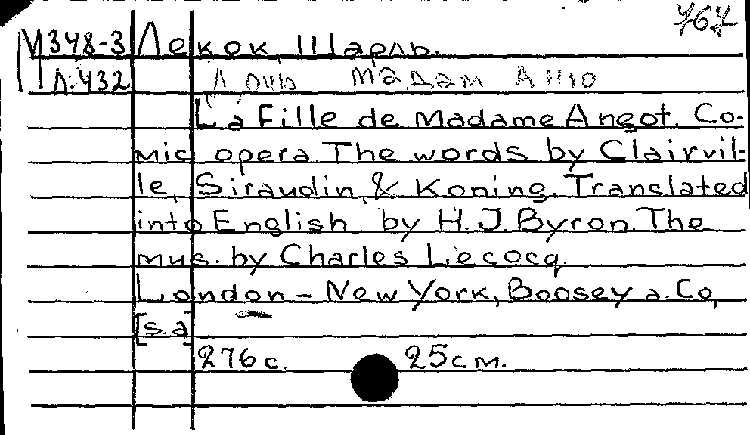 767
М348-3 Лекок, Шарль.
Л.432 Дочь мадам Анго
La Fille de Madame Angot. Co-
mic opera. The words by Clairvil-
le, Siraudin, & Koning. Translated
into English by H.J. Byron. The
mus. by Charles Lecocq.
London - New York, Boosey a. Co,
[s.a]
276 с. 25 см.